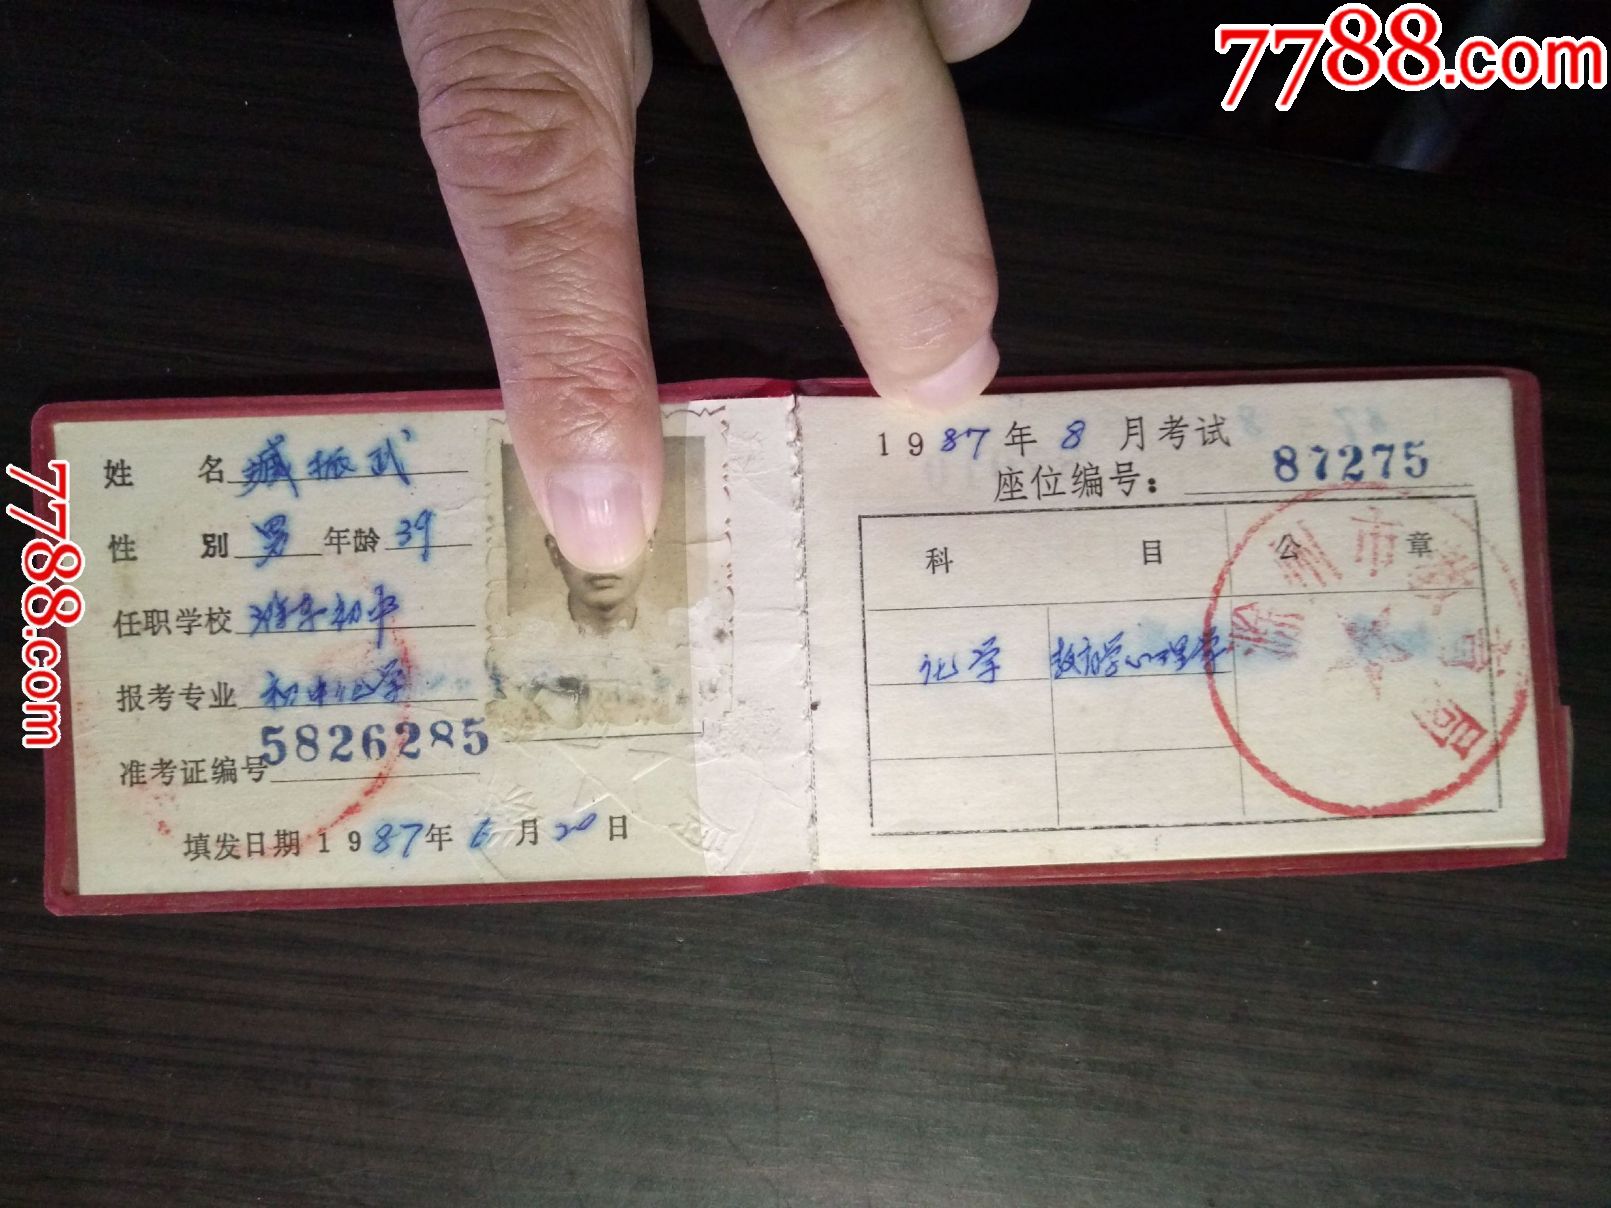 7788.com
7788.com
姓 名 臧振武
性 别 男 年龄 39
任职学校 初中
报考专业 初中化学
准考证编号 5826285
填发日期 1987年6月20日
1987年8月考试
座位编号： 87275
科 目 公 章
化学 教育学心理学